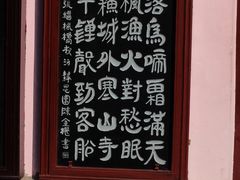 落烏啼霜滿天
楓漁火對愁眠
蘇城外寒山寺
半鍾聲到客船
張繼楓橋